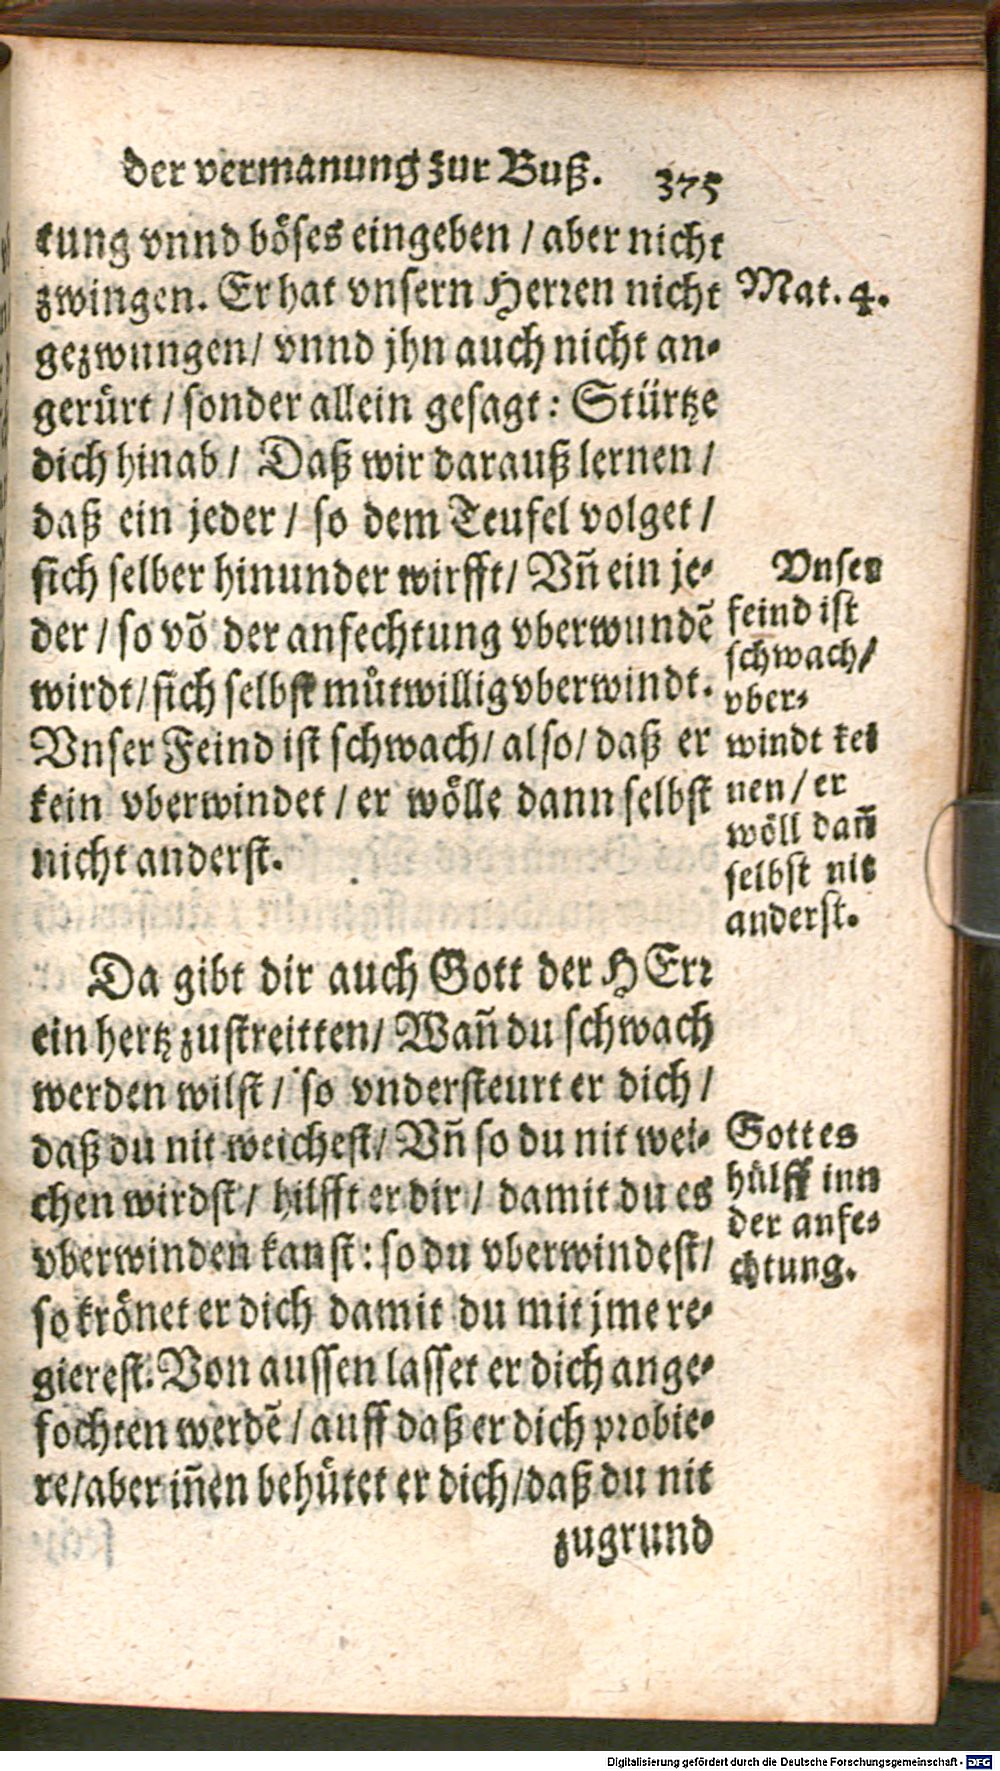 der vermanung zur Buß. 375
tung vnnd böses eingeben / aber nicht
zwingen. Er hat vnsern Herren nicht
gezwungen / vnnd jhn auch nicht an-
gerürt / sonder allein gesagt: Stürtze
dich hinab / Daß wir darauß lernen /
daß ein jeder / so dem Teufel volget /
sich selber hinunder wirfft / Vn̄ ein je-
der / so võ der anfechtung vberwundẽ
wirdt / sich selbst můtwillig vberwindt.
Vnser Feind ist schwach / also / daß er
kein vberwindet / er wölle dann selbst
nicht anderst.
Da gibt dir auch Gott der HErr
ein hertz zustreitten / Wan̄ du schwach
werden wilst / so vndersteurt er dich /
daß du nit weichest / Vn̄ so du nit wei-
chen wirdst / hilfft er dir / damit du es
vberwinden kanst: so du vberwindest /
so krönet er dich damit du mit jme re-
gierest. Von aussen lasset er dich ange-
fochten werdẽ / auff daß er dich probie-
re / aber in̄en behütet er dich / daß du nit
zugrund
Mat. 4.
Vnser
feind ist
schwach /
vber-
windt kei
nen / er
wöll dan̄
selbst nit
anderst.
Gottes
hülff inn
der anfe-
chtung.
Digitalisierung gefördert durch die Deutsche Forschungsgemeinschaft - DFG